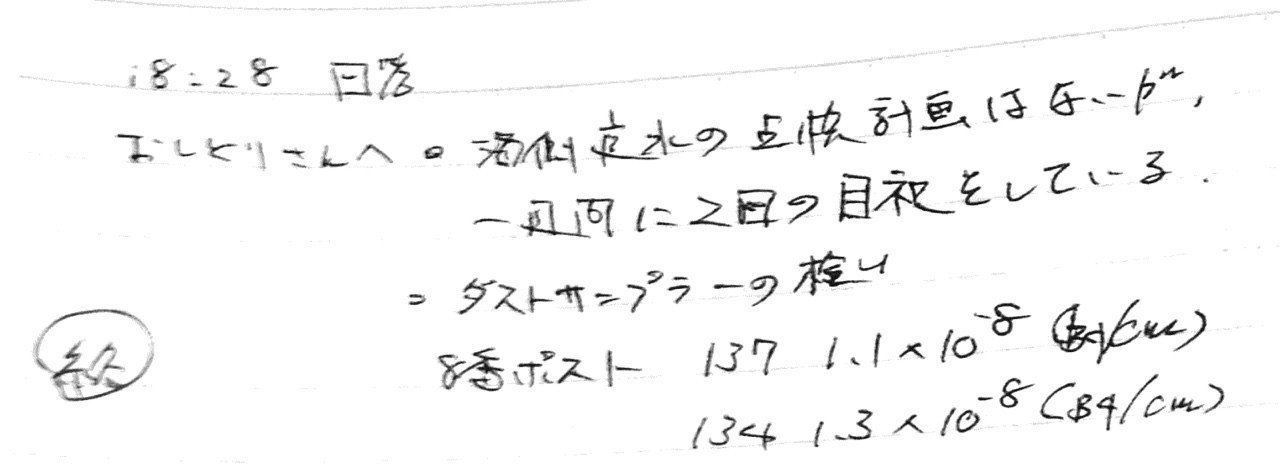 18:28 回答
おしどりさんへ。 海側 水の点検計画はないが、
一週間に2回の目視をしている.
= ダストサンプラーの検出
8番ポスト 137 1.1×10⁻⁸ (Bq/cm)
134 1.3×10⁻⁸ (Bq/cm)
終